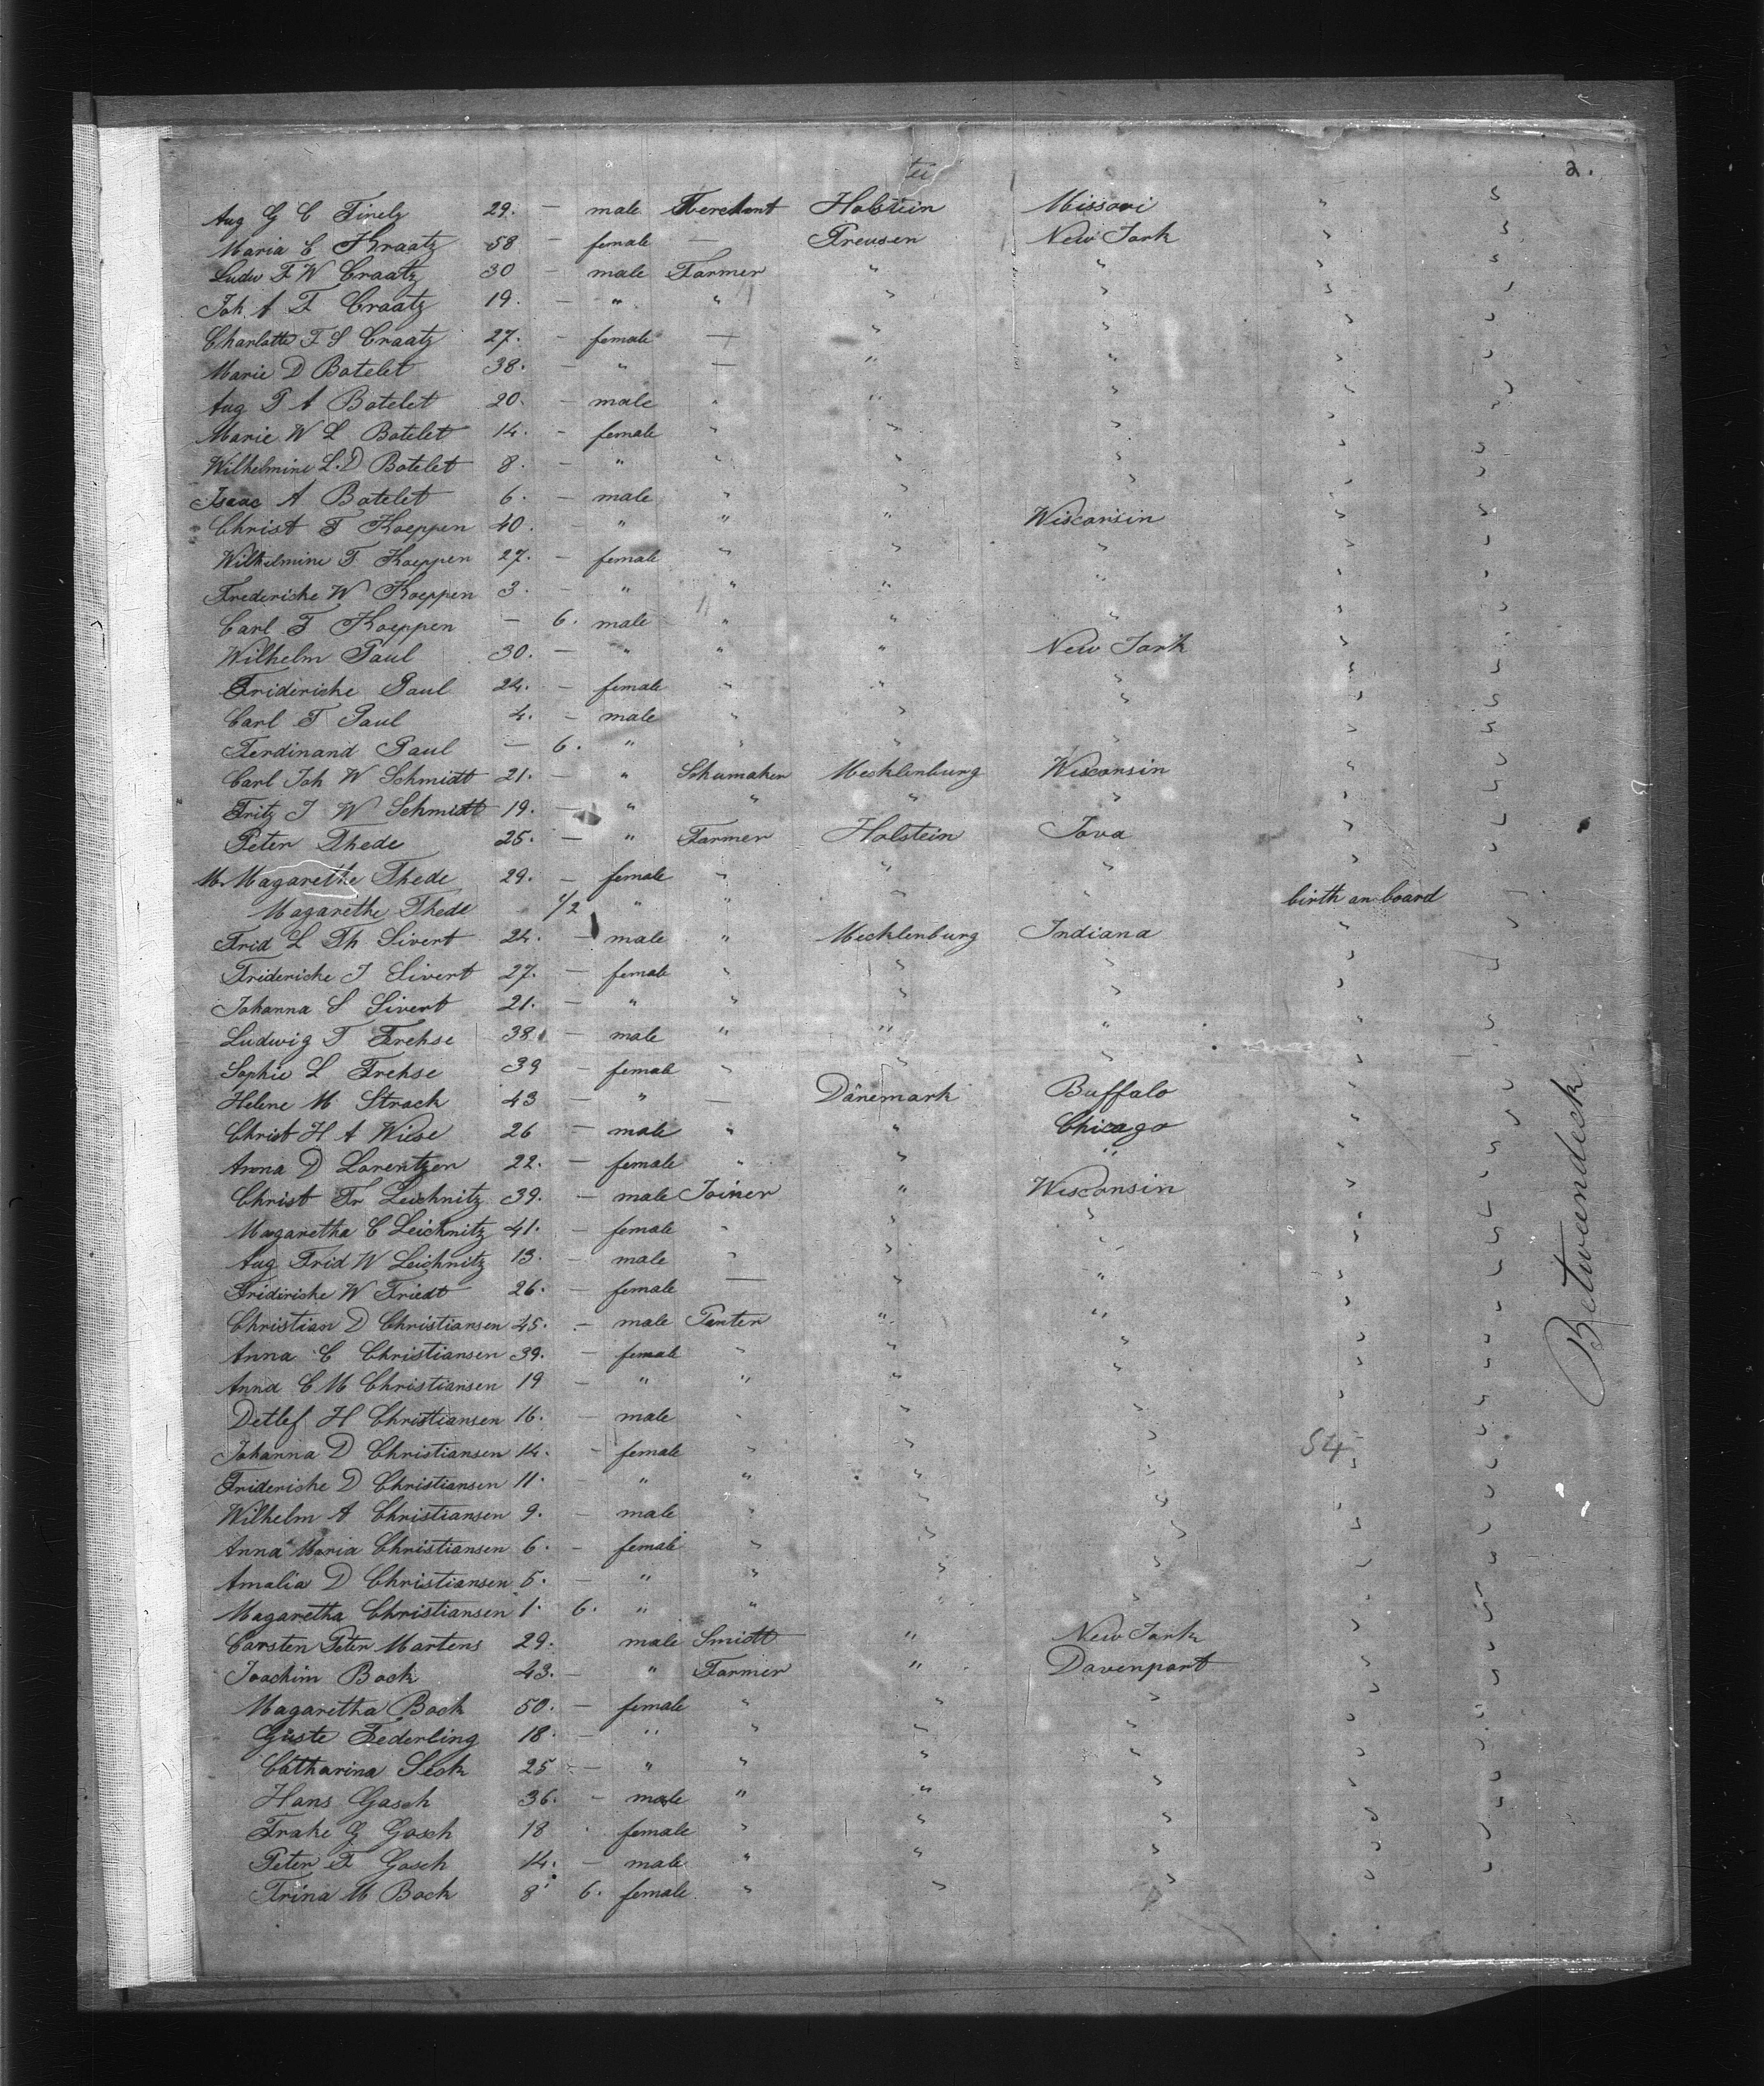 2.
Aug G C Tinely 29. — male Merchant Holstein Missouri "
Maria C Kraatz 58 — female — Preusen New York "
Ludw F W Craatz 30 — male Farmer " " "
Joh. A F Craatz 19. — " " " " "
Charlotte F S Craatz 27. — female — " " "
Marie D Batelet 38. — " — " " "
Aug P A Batelet 20. — male " " " "
Marie W L Batelet 14. — female " " " "
Wilhelmine L. D Batelet 8. — " " " " "
Isaac A Batelet 6. — male " " " "
Christ F Koeppen 40. — " " " Wisconsin "
Wilhelmine F Koeppen 27. — female " " " "
Frederiche W Koeppen 3. — " " " " "
Carl F Koeppen — 6. male " " " "
Wilhelm Paul 30. — " " " New York "
Frideriche Paul 24. — female " " " "
Carl F Paul 4. — male " " " "
Ferdinand Paul — 6. " " " " "
Carl Joh W Schmidt 21. — " Schumaker Mecklenburg Wisconsin "
Fritz J W Schmidt 19. — " " " " "
Peter Thede 25. — " Farmer Holstein Iova "
M. Magarethe Thede 29. — female " " " "
Magarethe Thede 1/2 " " " " birth on board
Frid L Th Sivert 24. — male " Mecklenburg Indiana "
Frideriche J Sivert 27. — female " " " "
Johanna S Sivert 21. — " " " " "
Ludwig F Frehse 38. — male " " " "
Sophie L Frehse 39 — female " " " "
Helene M Strack 43 — " — Dänemark Buffalo "
Christ H A Wiese 26 — male " " Chicago "
Anna D Lorentzen 22. — female " " " "
Christ Fr Leichnitz 39. — male Joiner " Wisconsin "
Magaretha C Leichnitz 41. — female " " " "
Aug Frid W Leichnitz 13. — male " " " "
Frideriche W Friedt 26. — female — " " "
Christian D Christiansen 45. — male Penter " " "
Anna C Christiansen 39. — female " " " "
Anna C M Christiansen 19 — " " " " "
Detlef H Christiansen 16. — male " " " "
Johanna D Christiansen 14. — female " " " 54
Frideriche D Christiansen 11. — " " " " "
Wilhelm A Christiansen 9. — male " " " "
Anna Maria Christiansen 6. — female " " " "
Amalia D Christiansen 5. — " " " " "
Magaretha Christiansen 1. 6. " " " " "
Carsten Peter Martens 29. male Smidt " New York "
Joachim Bock 43. — " Farmer " Davenport "
Magaretha Bock 50. — female " " " "
Guste Federling 18. — " " " " "
Catharina Sick 25 — " " " " "
Hans Gasch 36. — male " " " "
Frake G Gosch 18 female " " " "
Peter F Gosch 14. — male " " " "
Trina M Bock 8. 6. female " " " "
Betwaendeck